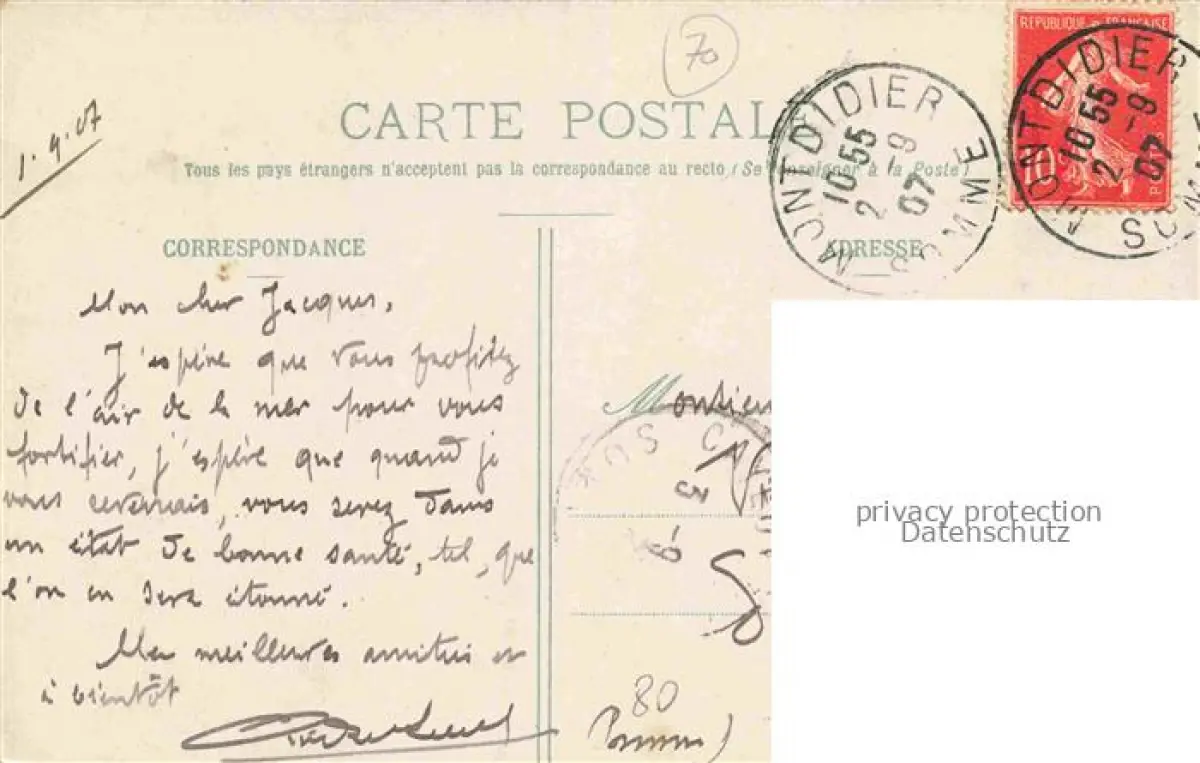 70
1.9.07
RÉPUBLIQUE FRANÇAISE
10
CARTE POSTALE
Tous les pays étrangers n'acceptent pas la correspondance au recto (Se renseigner à la Poste)
MONTDIDIER
10 55
2 -9
07
SOMME
MONTDIDIER
10 55
2 -9
07
SOMME
CORRESPONDANCE
ADRESSE
Mon cher Jacques,
J'espère que vous profitez
de l'air de la mer pour vous
fortifier, j'espère que quand je
vous reverrais, vous serez dans
un état de bonne santé, tel, que
l'on en sera étonné.
Mes meilleures amitiés et
à bientôt
Monsieu
SUR
3
9
80
privacy protection
Datenschutz